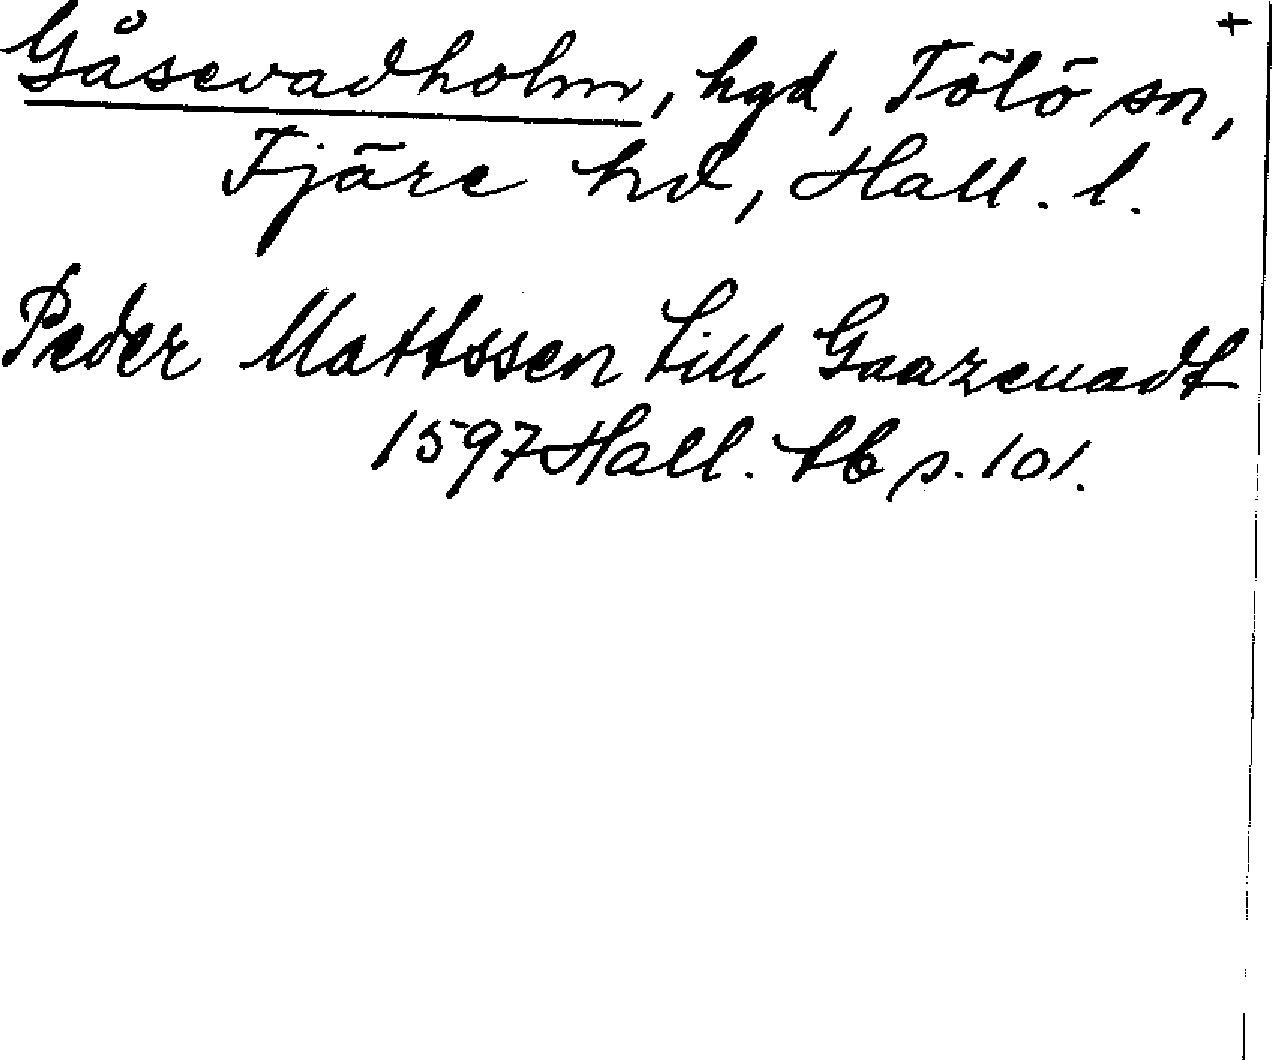 +
Gåsevadholm, hgd, Tölö sn,
Fjäre hd, Hall. l.
Peder Mattssen till Gaazeuadt
1597 Hall. tb s. 101.